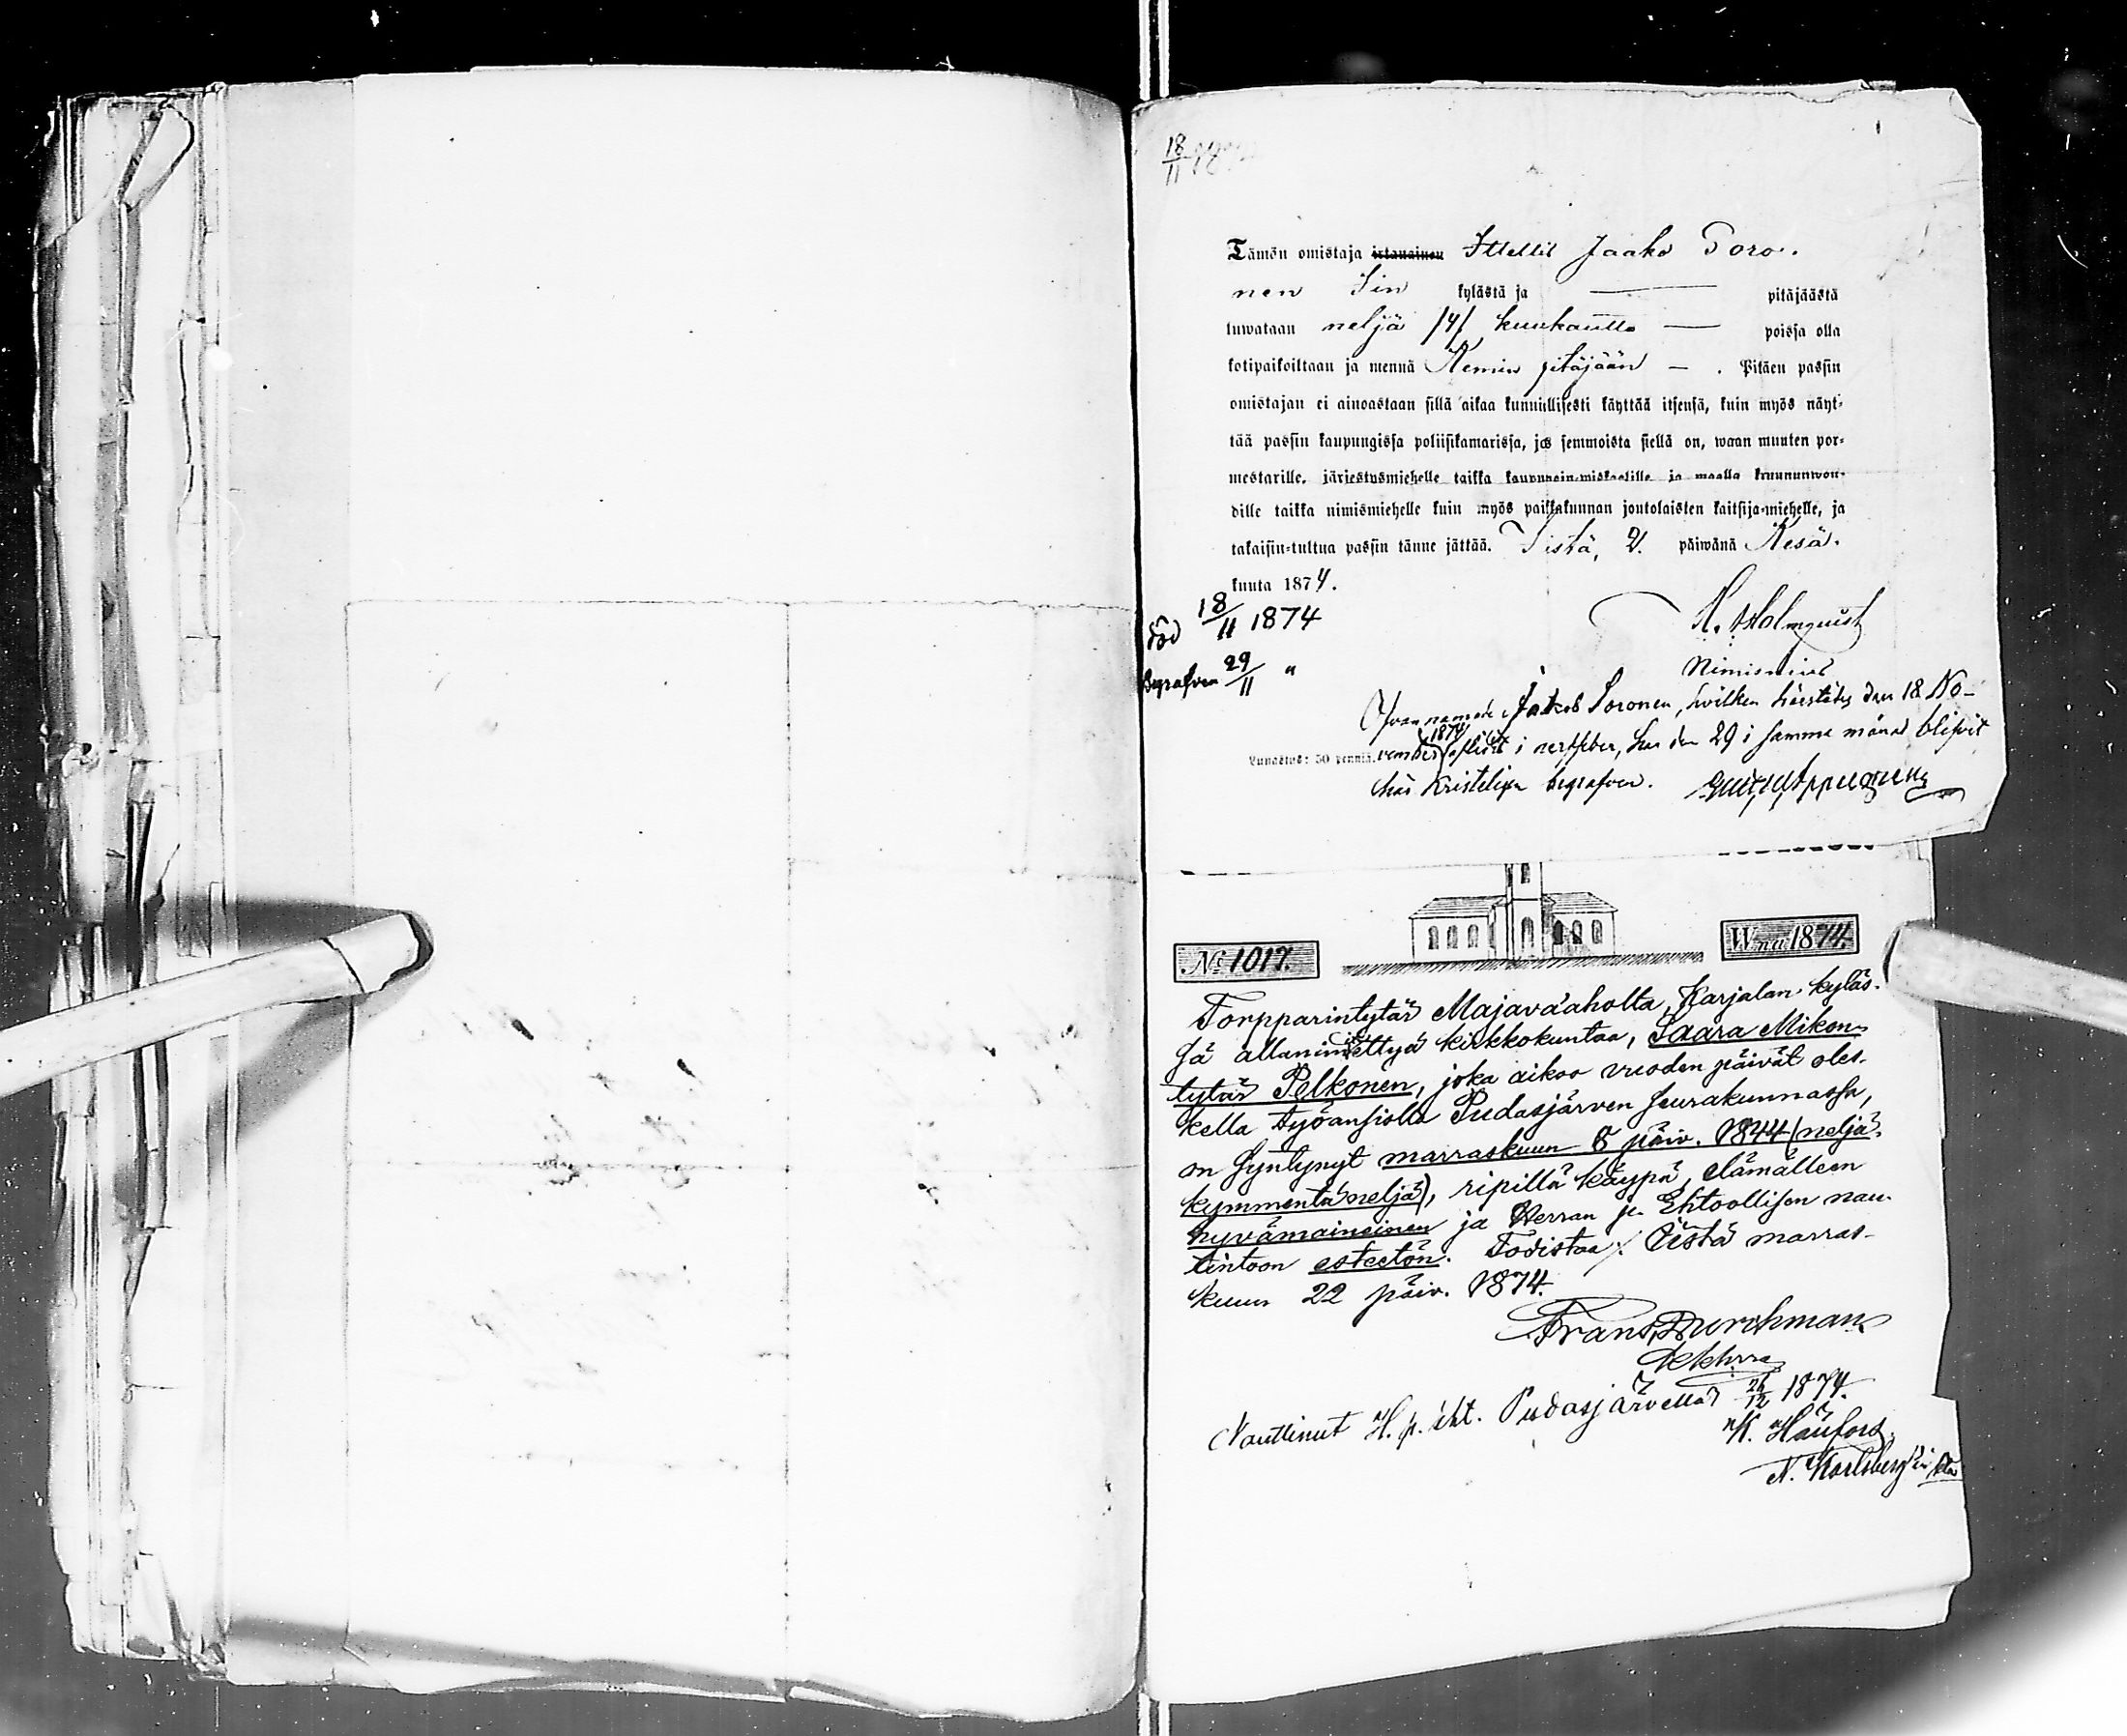 18/11
Tämän omistaja irtanainen Ittellis Jaako Soro-
nen Iin kylästä ja — pitäjäästä
luwataan neljä /4/ kuukautta — poissa olla
kotipaikoiltaan ja mennä Kemin pitäjään — . Pitäen passin
omistajan ei ainoastaan sillä aikaa kunniallisesti käyttää itsensä, kuin myös näyt-
tää passin kaupungissa poliisikamarissa, jos semmoista siellä on, waan muuten por-
mestarille, järjestysmiehelle taikka kaupungin-wiskaalille ja maalla kruununwou-
dille taikka nimismiehelle kuin myös paikkakunnan joutolaisten kaitsija-miehelle, ja
takaisin-tultua passin tänne jättää. Iistä, 2. päiwänä Kesä-
kuuta 1874.
död 18/11 1874
K. Holmquist
Begrafven 29/11 "
Nimismies
Ofvannämnde Jakob Soronen, hvilken härstädes den 18 No-
vember 1874 aflidit i nerffeber, har den 29 i samma månad blifvit
Lunastus: 50 penniä.
här kristeligen begrafven.
No 1017. Wna 1874.
Torpparintytär Majavaaholta, Karjalan kyläs-
sä allanimettyä kirkkokuntaa, Saara Mikon-
tytär Pelkonen, joka aikoo vuoden päivät oles-
kella työansiolla Pudasjärven seurakunnassa,
on syntynyt marraskuun 8 päiv. 1844 (neljä-
kymmentäneljä), ripillä käypä, elämälleen
hyvämaineinen ja Herran p. Ehtoollisen nau-
tintoon esteetön. Todistaa, Iistä marras-
kuun 22 päiv. 1874.
Frans Durchman
Nauttinut H. p. eht. Pudasjärvellä 26/12 1874.
K. Häüfors.
N. Karlsberg